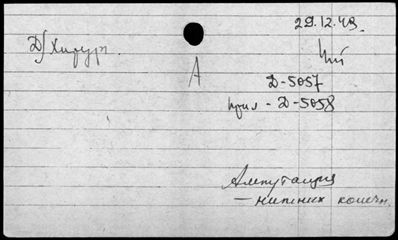 29.12.43.
Д/Хирург.
А
Д-5057
прил - Д-5058
Ампутация
– нижних конечн.